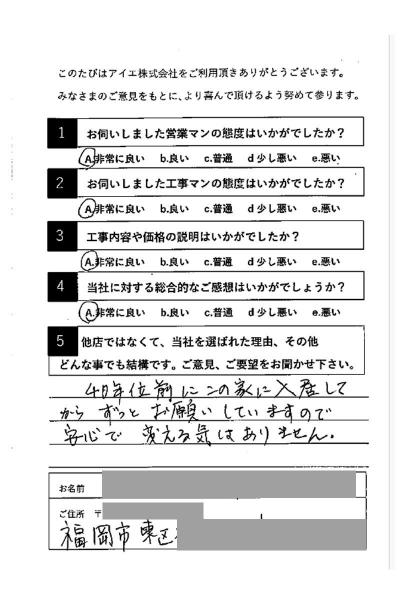 このたびはアイエ株式会社をご利用頂きありがとうございます。
みなさまのご意見をもとに、より喜んで頂けるよう努めて参ります。
1 お伺いしました営業マンの態度はいかがでしたか?
A.非常に良い b.良い c.普通 d少し悪い e.悪い
2 お伺いしました工事マンの態度はいかがでしたか?
A.非常に良い b.良い c.普通 d少し悪い e.悪い
3 工事内容や価格の説明はいかがでしたか?
A.非常に良い b.良い c.普通 d少し悪い e.悪い
4 当社に対する総合的なご感想はいかがでしょうか?
A.非常に良い b.良い c.普通 d少し悪い e.悪い
5 他店ではなくて、当社を選ばれた理由、その他
どんな事でも結構です。ご意見、ご要望をお聞かせ下さい。
40年位前にこの家に入居して
からずっとお願いしていますので
安心で変える気はありません.
お名前
ご住所 〒
福岡市東区